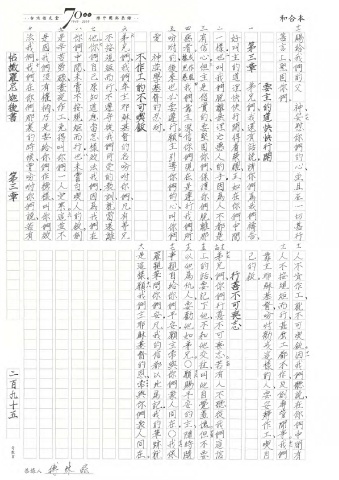 和合本
7000
賜給我們的父 神安慰你們的心並且在一切善行
言上堅固你們
第三章 要主的道快快行開
弟兄們我還有話說請你們為我們禱告
好叫主的道理快快行開得着榮耀正如在你們中間
一樣也叫我們脫離無理之惡人的手因為人不都是
有信心但主是信實的要堅固你們保護你們脫離那
惡者我們靠主深信你們現在是遵行我們所吩
咐的後來也必要遵行願主引導你們的心叫你們
愛 神並學基督的忍耐
不作工的不可喫飯
弟兄們我們奉主耶穌基督的名吩咐你們凡有弟兄
不按規矩而行不遵守從我們所受的教訓就當遠離
他你們自己原知道應當怎樣效法我們因為我們在
你們中間未嘗不按規矩而行也未嘗白喫人的飯倒
是辛苦勞碌晝夜作工免得叫你們一人受累這並不
是因我們沒有權柄乃是要給你們作榜樣叫你們效
法我們我們在你們那裏的時候曾吩咐你們說若有
人不肯作工就不可喫飯因我們聽說在你們中間有
人不按規矩而行甚麼工都不作反倒專管閒事我們
靠主耶穌基督吩咐勸戒這樣的人要安靜作工喫自
己的飯
行善不可喪志
弟兄們你們行善不可喪志若有人不聽從我們這信
上的話要記下他不和他交往叫他自覺羞愧但不要
以他為仇人要勸他如弟兄願賜平安的主隨時隨
事親自給你們平安願主常與你們眾人同在我保
羅親筆問你們安凡我的信都以此為記我的筆跡就
是這樣願我們主耶穌基督的恩常與你們眾人同在
帖撒羅尼迦後書 第三章
二百九十五